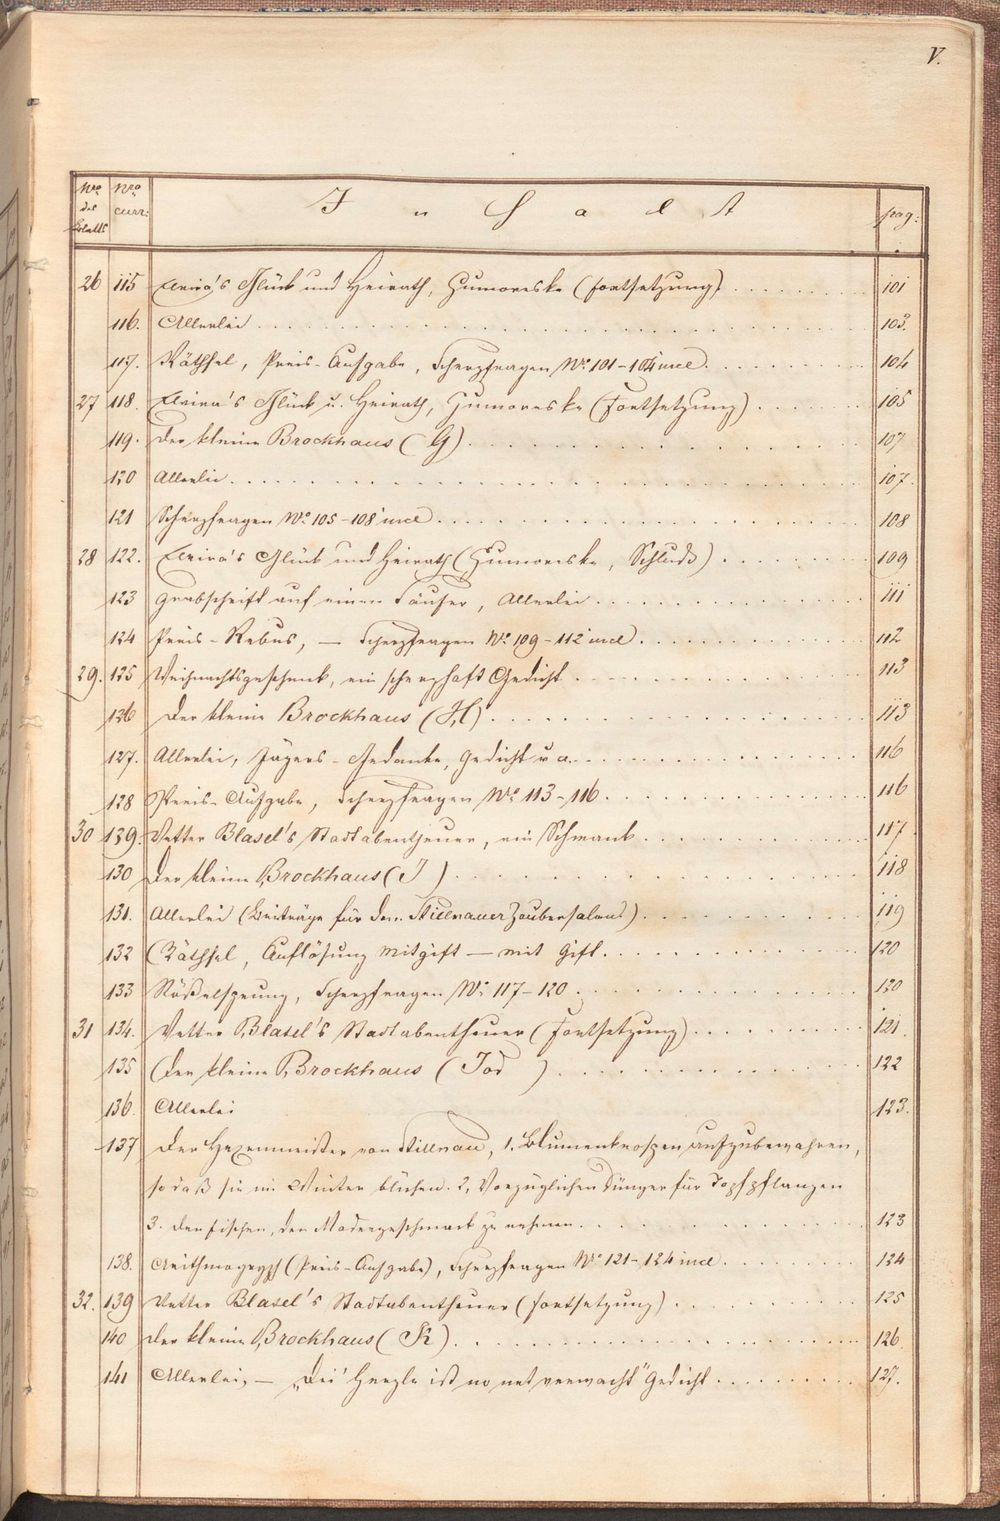 V.
Nro des Blatts Nro curr: Inhalt pag:
26 115 Elvira's Glück und Heirath, Humoreske (Fortsetzung) 101
116. Allerlei 103.
117. Räthsel, Preis-Aufgabe, Scherzfragen No 101-104 incl. 104
27 118. Elvira's Glück u. Heirath, Humoreske (Fortsetzung) 105
119. Der kleine Brockhaus (G) 107
120 Allerlei 107.
121 Scherzfragen No 105-108 incl 108
28 122. Elvira's Glück und Heirath (Humoreske, Schluß) 109
123 Grabschrift auf einen Säufer, Allerlei 111
124 Preis-Rebus, — Scherzfragen No 109-112 incl 112
29. 125 Weihnachtsgeschenk, ein scherzhaft Gedicht 113
126 Der kleine Brockhaus (H) 113
127. Allerlei, Jägers-Gedanke, Gedicht u a. 116
128 Preis-Aufgabe, Scherzfragen No 113-116 116
30 129. Vetter Blasel's Stadtabentheuer, ein Schwank 117
130 Der kleine Brockhaus (I) 118
131. Allerlei (Beiträge für den Stillnauer Zaubersalons) 119
132 (Räthsel, Auflösung Mitgift — mit Gift 120
133 Rößelsprung, Scherzfragen No 117-120 120
31 134. Vetter Blasel's Stadtabentheuer (Fortsetzung) 121
135 (Der kleine Brockhaus (Jod) 122
136. Allerlei 123.
137 Der Hexenmeister von Stillnau, 1. Blumenknospen aufzubewahren,
so daß sie im Winter blühen. 2, Vorzüglichen Dünger für Topfpflanzen
3. den Fischen, den Modergeschmack zu nehmen 123
138. Arithmogryph (Preis-Aufgabe), Scherzfragen No 121-124 incl 124
32. 139 Vetter Blasel's Stadtabentheuer (Fortsetzung) 125
140 Der kleine Brockhaus (K) 126
141 Allerlei, — „Dei' Herzle ist no net verwacht" Gedicht 127.